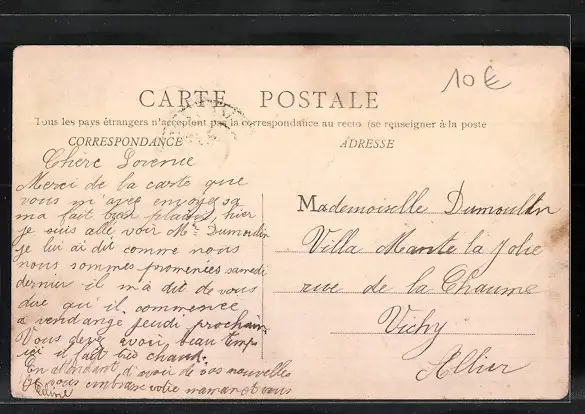 10 €
CARTE POSTALE
Tous les pays étrangers n'acceptent pas la correspondance au recto (se renseigner à la poste
CORRESPONDANCE
ADRESSE
Chère
Merci de la carte que
vous m'avez envoyé sa
ma fait bon plaisir, hier
je suis allé voir Mr Dumoulin
je lui ai dit comme nous
nous sommes promenées samedi
dernier il m'a dit de vous
dire qu'il commence
a vendange jeudi prochain
Vous devez avoir beau temp
ici il fait très chaud.
En attendant d'avoir de vos nouvelles
Je vous embrasse votre maman et vous
Céline
Mademoiselle Dumoulin
Villa Mante la Jolie
rue de la Chaume
Vichy
Allier